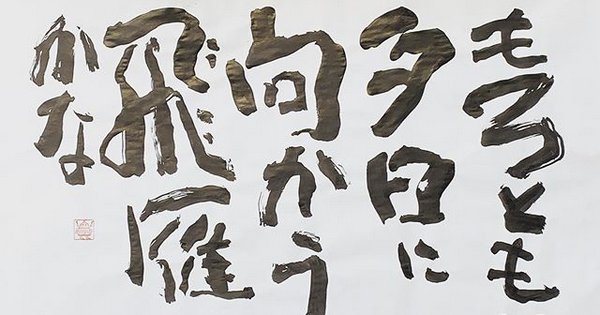 もろとも
夕日に
向かう
飛雁
かな